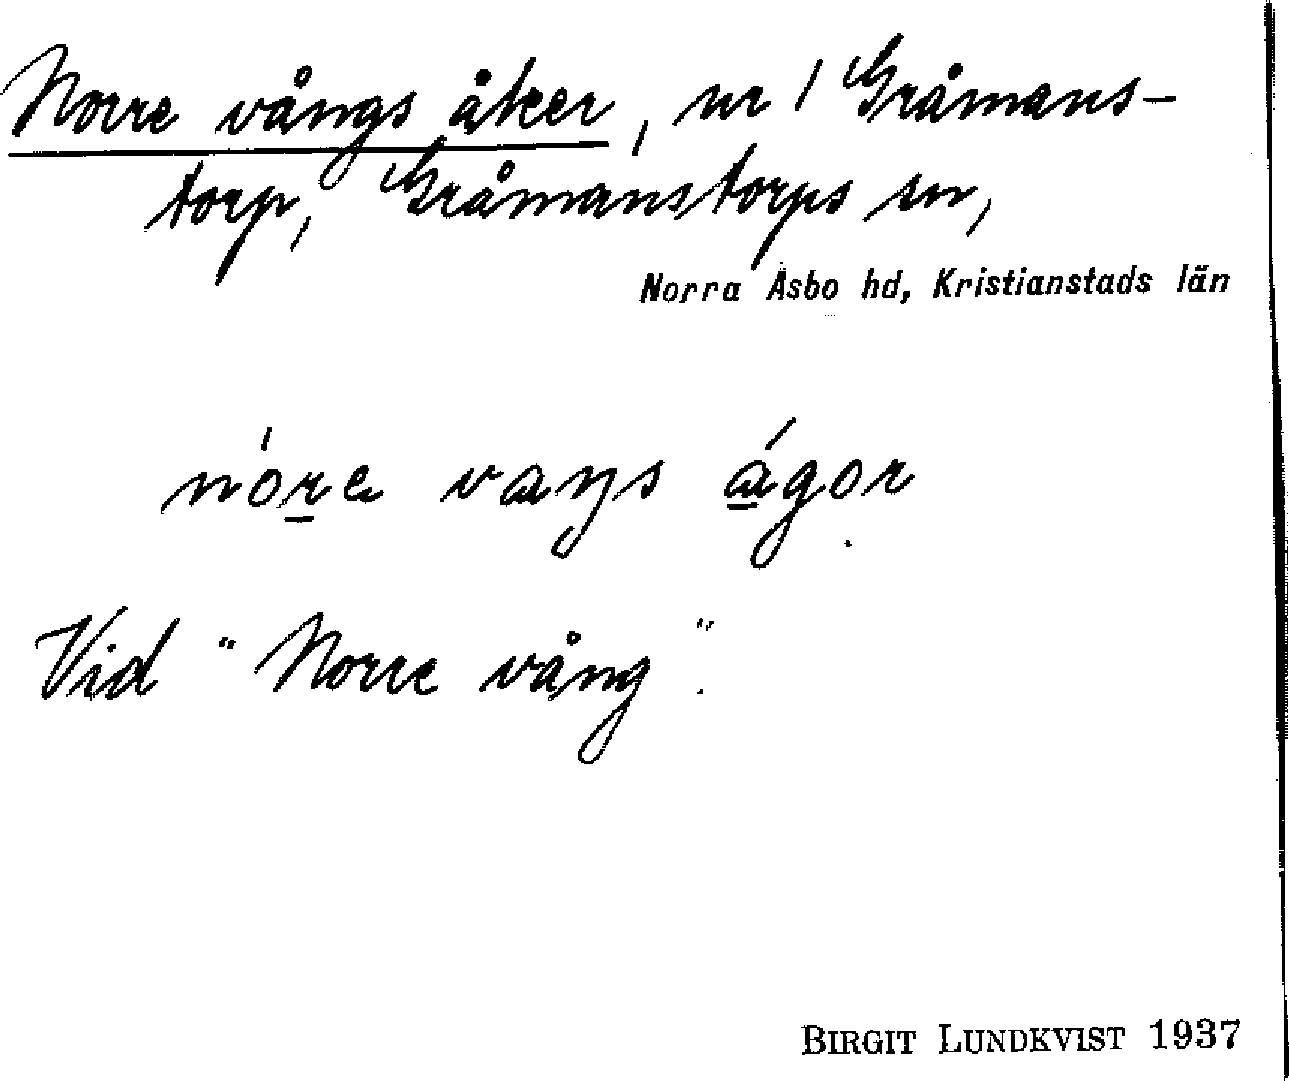 Norre vångs åker, nr 1 Gråmans-
torp, Gråmanstorps sn,
Norra Åsbo hd, Kristianstads län
nó̱re vaŋs á̱gọr
Vid "Norre vång".
BIRGIT LUNDKVIST 1937